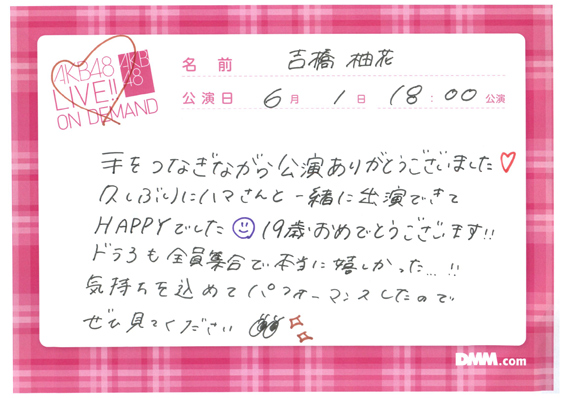 AKB48
LIVE!!
ON DEMAND
AKB
48
名前 吉橋 柚花
公演日 6月 1日 18:00 公演
手をつなぎながら公演ありがとうございました♡
久しぶりにハマさんと一緒に出演できて
HAPPYでした 19歳おめでとうございます!!
ドラ3も全員集合で本当に嬉しかった...!!
気持ちを込めてパフォーマンスしたので
ぜひ見てください
DMM.com